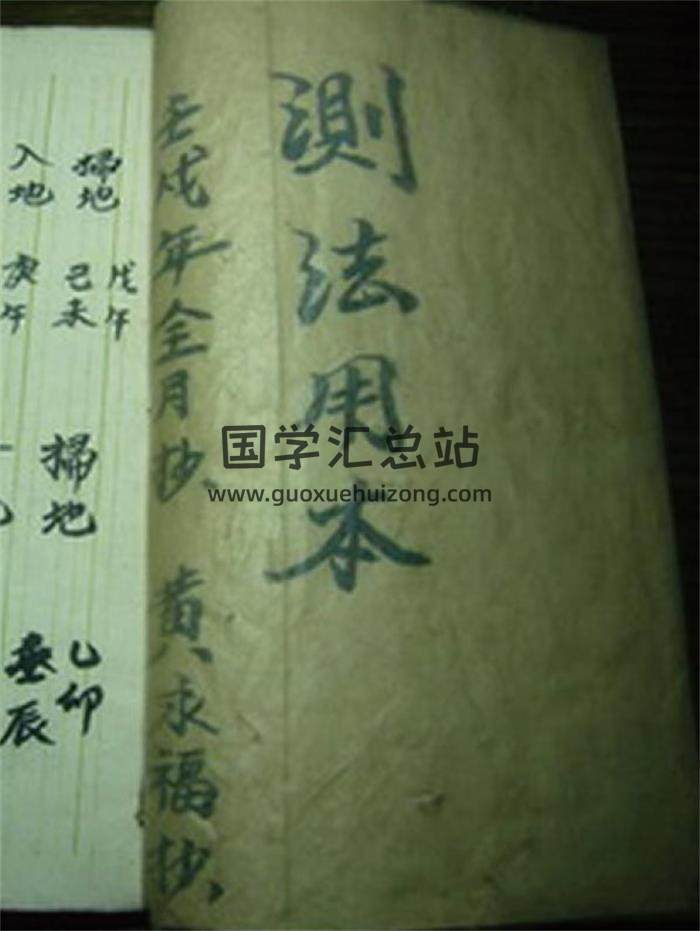 測法用本
壬戌年全月抄 黄永福抄
国学汇总站
www.guoxuehuizong.com
戊午
掃地 己未
入地 庚午
掃地 乙卯
辰